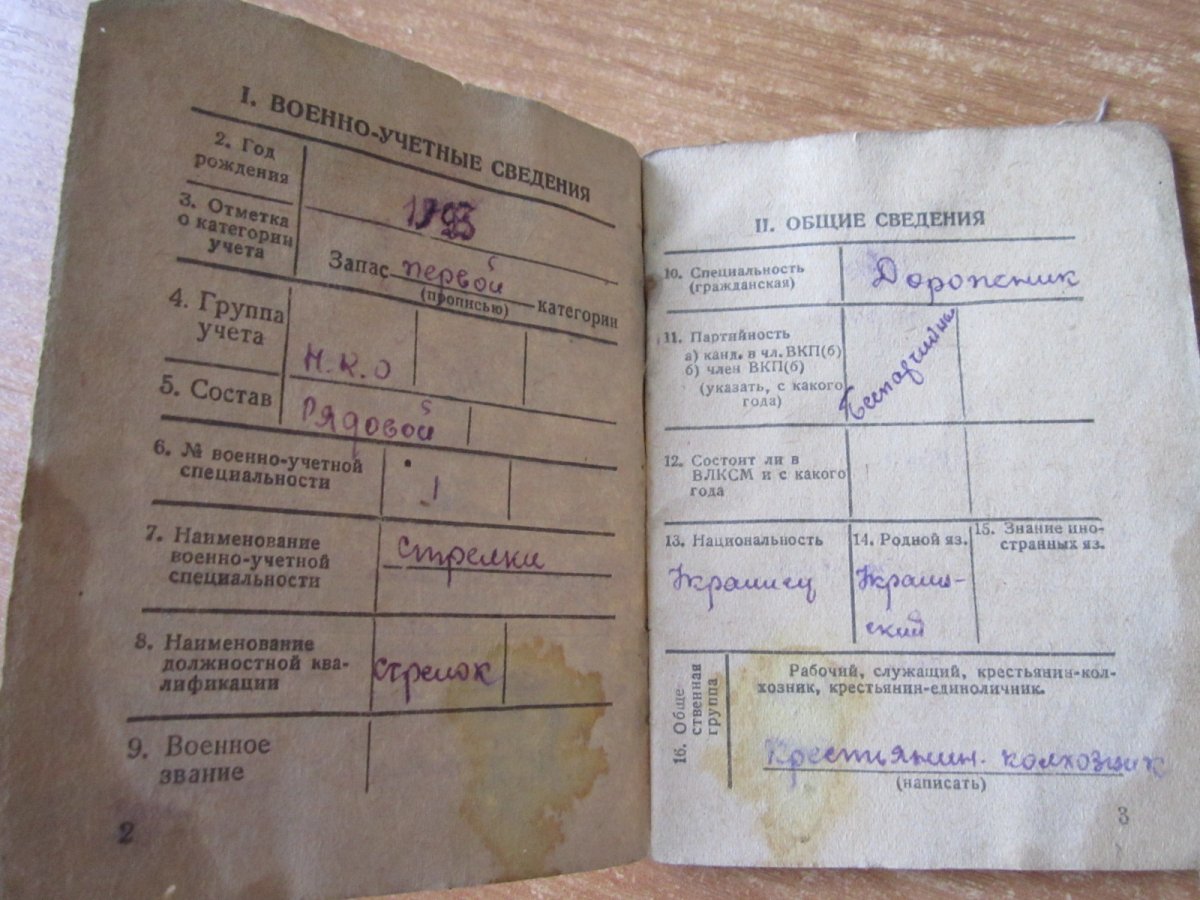 I. ВОЕННО-УЧЕТНЫЕ СВЕДЕНИЯ
2. Год
рождения
3. Отметка
о категории
учета
Запас первой категории
(прописью)
4. Группа
учета
Н.К.О
5. Состав
Рядовой
6. № военно-учетной
специальности
1
7. Наименование
военно-учетной
специальности
стрелки
8. Наименование
должностной ква-
лификации
стрелок
9. Военное
звание
2
II. ОБЩИЕ СВЕДЕНИЯ
10. Специальность
(гражданская)
Дорожник
11. Партийность
а) канд. в чл. ВКП(б)
б) член ВКП(б)
(указать, с какого
года)
12. Состоит ли в
ВЛКСМ и с какого
года
13. Национальность
Украинец
14. Родной яз.
Украин-
ский
15. Знание ино-
странных яз.
16. Обще
ственная
группа
Рабочий, служащий, крестьянин-кол-
хозник, крестьянин-единоличник.
Крестиянин. колхозник
(написать)
3